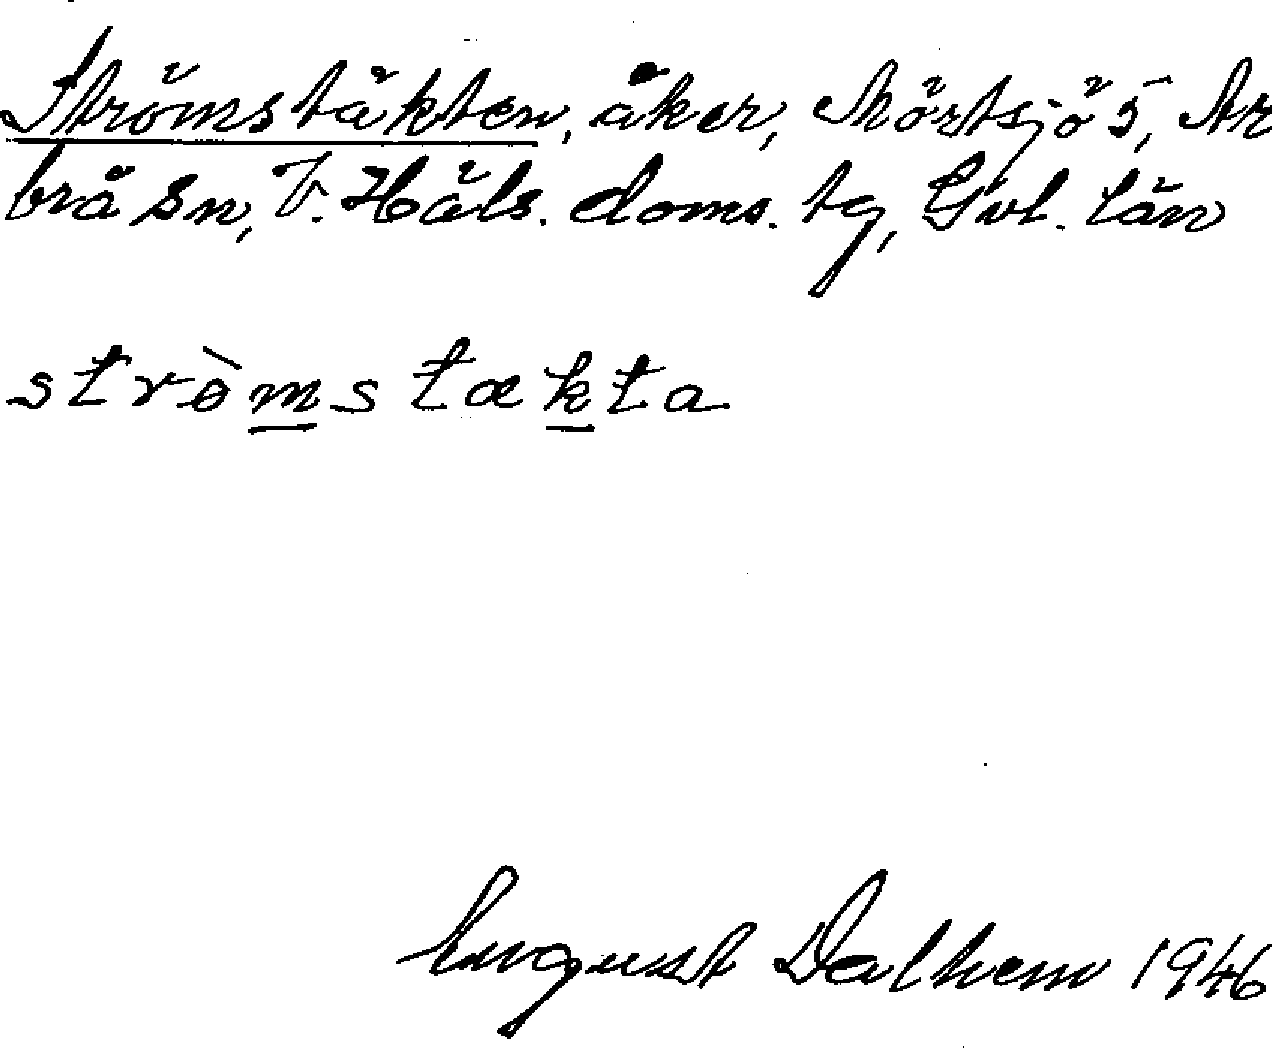 Strömstäkten, åker, Mörtsjö 5, Ar
brå sn, V. Häls. doms. tg, Gvl. län
stròmstækta
August Dalhem 1946